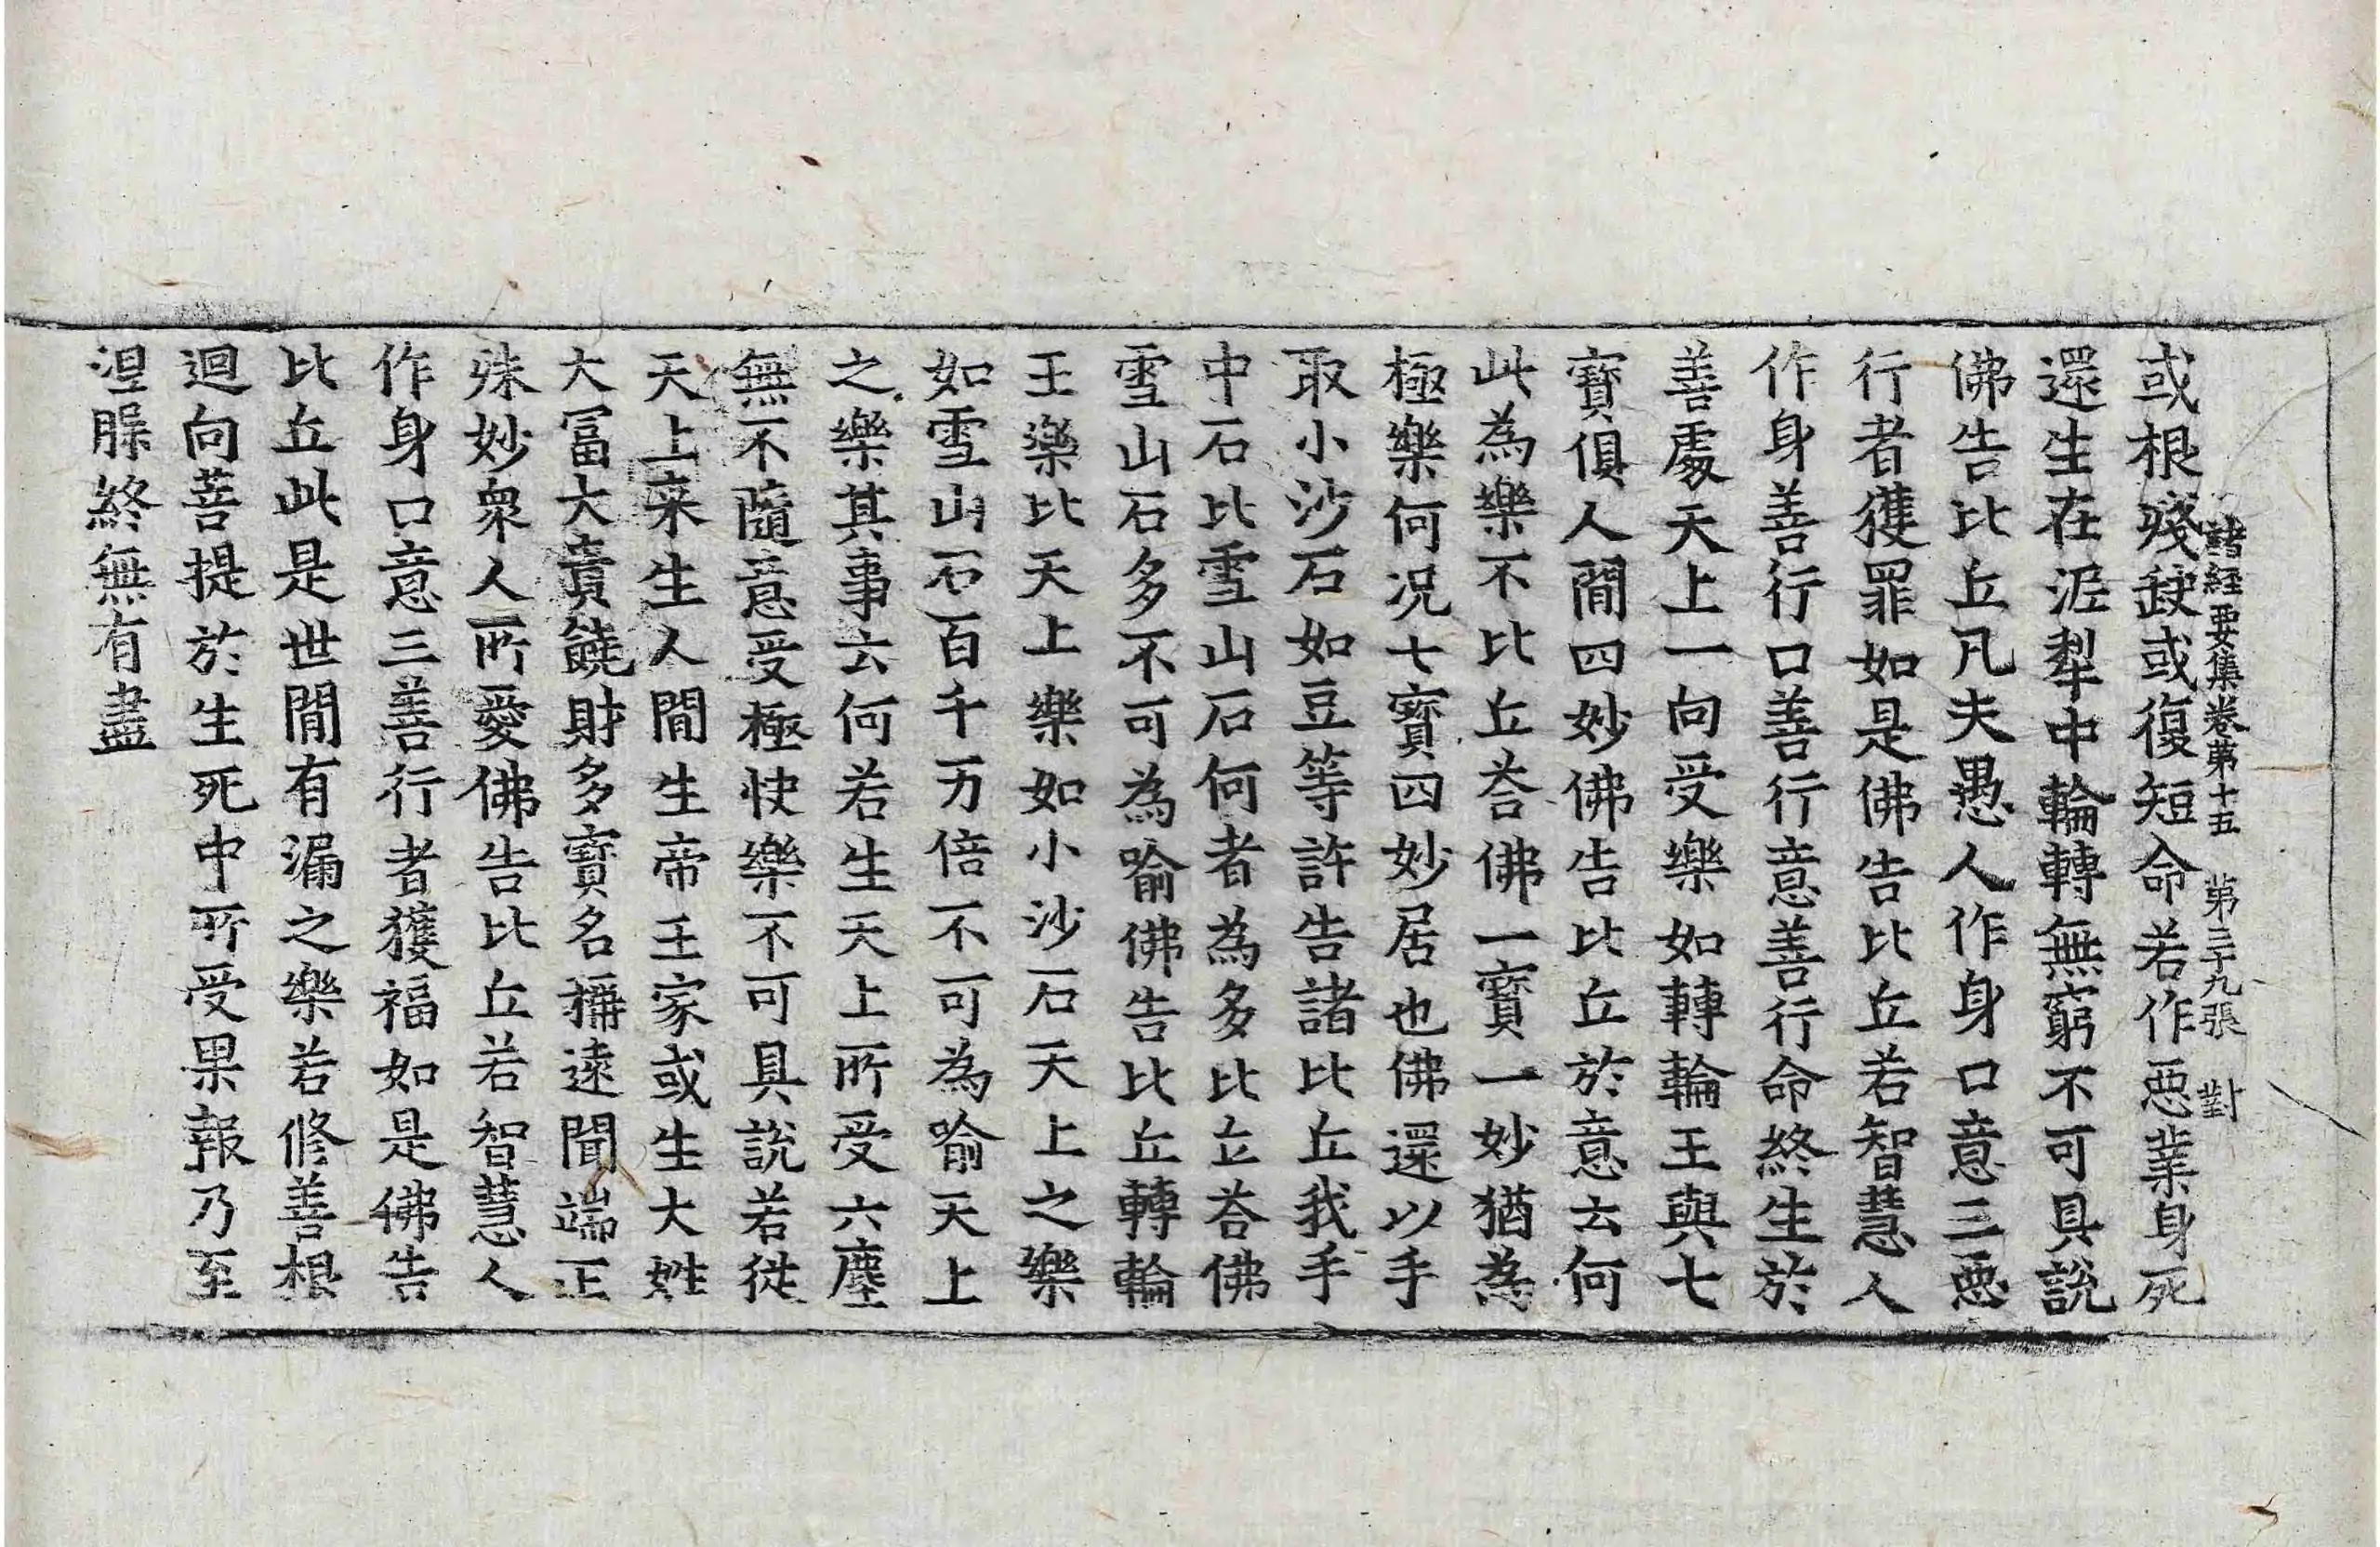 諸經要集卷第十五 第三十九張 對
或根殘缺或復短命若作惡業身死
還生在泥犁中輪轉無窮不可具說
佛告比丘凡夫愚人作身口意三惡
行者獲罪如是佛告比丘若智慧人
作身善行口善行意善行命終生於
善處天上一向受樂如轉輪王與七
寶俱人閒四妙佛告比丘於意云何
此為樂不比丘荅佛一寶一妙猶為
極樂何況七寶四妙居也佛還以手
取小沙石如豆等許告諸比丘我手
中石比雪山石何者為多比丘荅佛
雪山石多不可為喻佛告比丘轉輪
王樂比天上樂如小沙石天上之樂
如雪山石百千万倍不可為喻天上
之樂其事云何若生天上所受六塵
無不隨意受極快樂不可具說若從
天上来生人閒生帝王家或生大姓
大冨大貴饒財多寶名稱遠聞端正
殊妙衆人所愛佛告比丘若智慧人
作身口意三善行者獲福如是佛告
比丘此是世閒有漏之樂若修善根
迴向菩提於生死中所受果報乃至
涅槃終無有盡